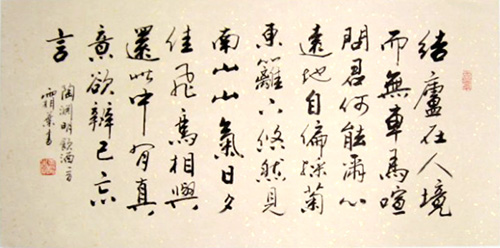 結廬在人境
而無車馬喧
問君何能爾心
遠地自偏採菊
東籬下悠然見
南山山氣日夕
佳飛鳥相與
還此中有真
意欲辯已忘
言
陶淵明飲酒一首
書